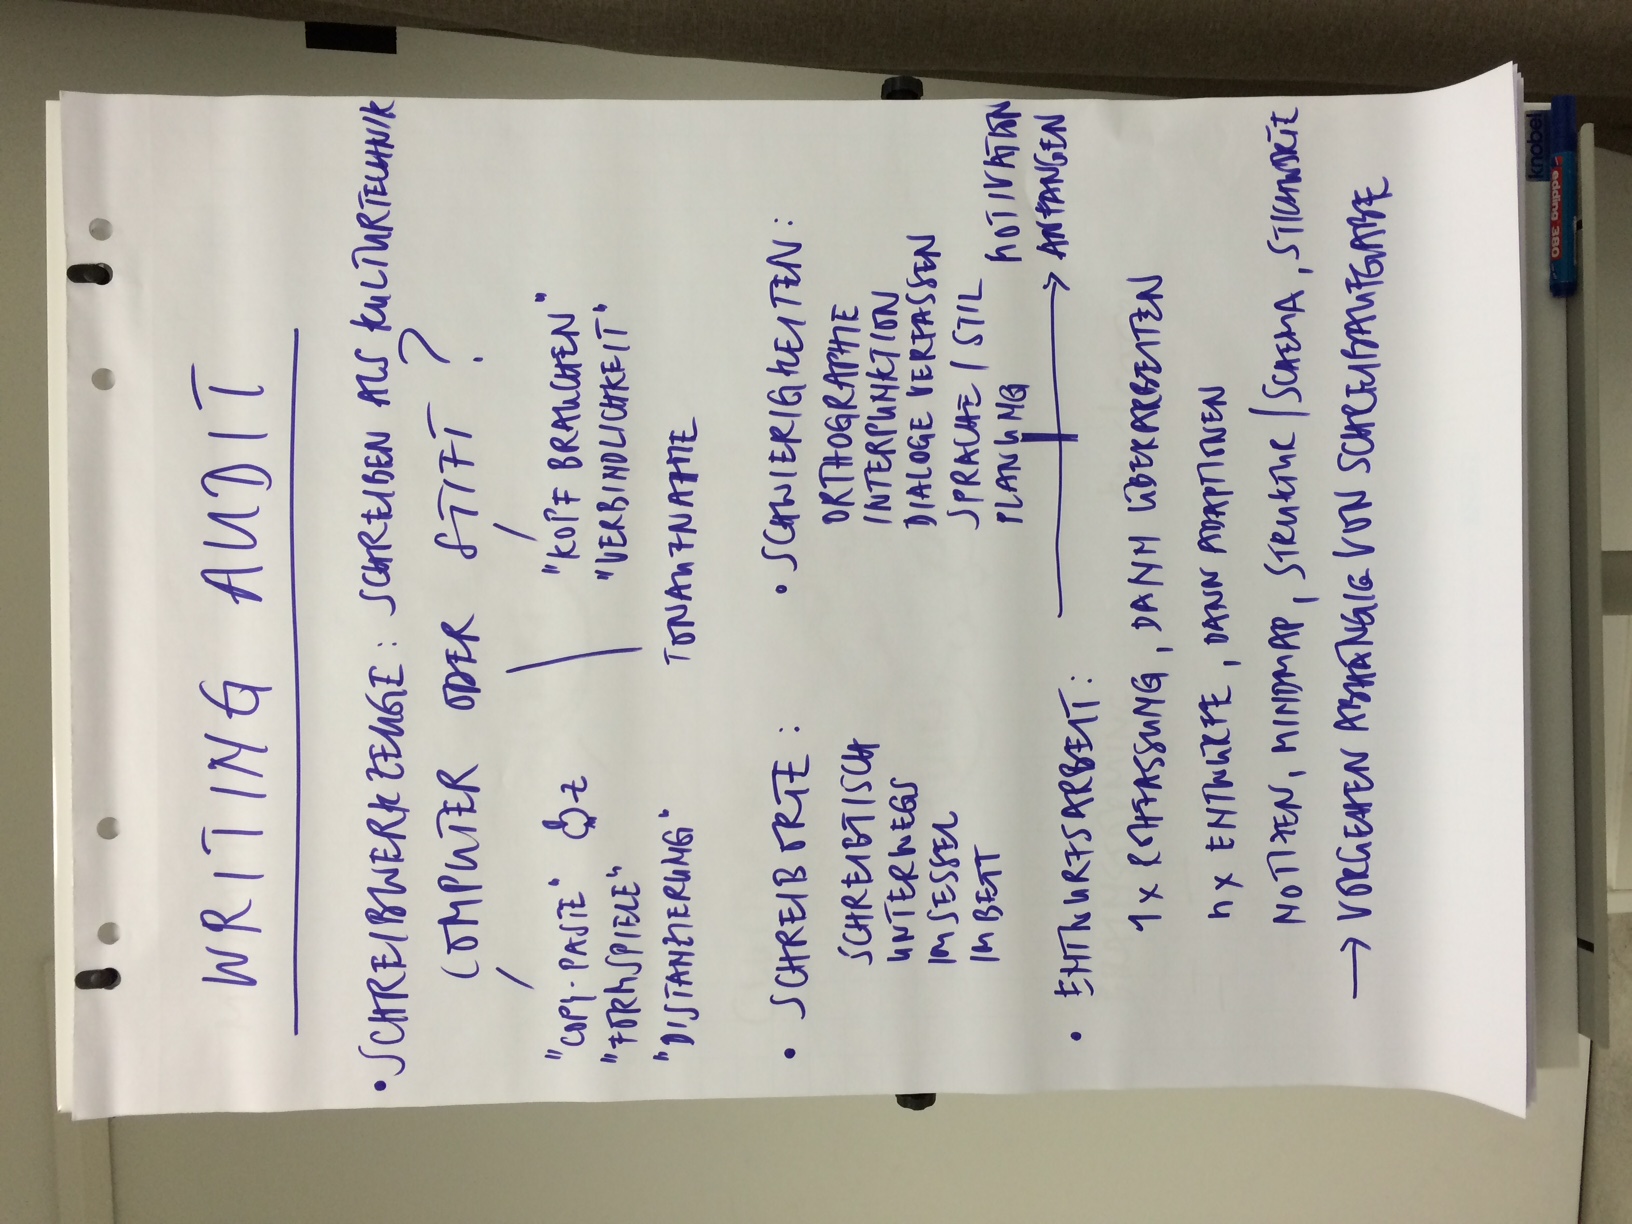 WRITING AUDIT
• SCHREIBWERKZEUGE: SCHREIBEN ALS KULTURTECHNIK
COMPUTER ODER STIFT ?
"COPY-PASTE"
"FORMSPIELE"
"DISTANZIERUNG"
"KOPF BRAUCHEN"
"VERBINDLICHKEIT"
TONAUFNAHME
• SCHREIBORTE:
SCHREIBTISCH
UNTERWEGS
IM SESSEL
IM BETT
• SCHWIERIGKEITEN:
ORTHOGRAPHIE
INTERPUNKTION
DIALOGE VERFASSEN
SPRACHE / STIL
PLANUNG
MOTIVATION
→ ANFANGEN
• ENTWURFSARBEIT:
1 x ROHFASSUNG, DANN ÜBERARBEITEN
n x ENTWÜRFE, DANN ADAPTIONEN
NOTIZEN, MINDMAP, STRUKTUR / SCHEMA, STICHWORTE
→ VORGEHEN ABHÄNGIG VON SCHREIBAUFGABE
knobel
edding 380